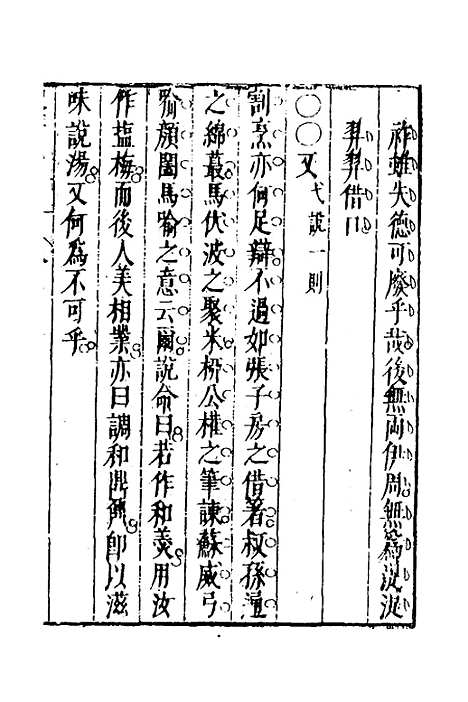 祚雖失德可廢乎哉後無兩伊周無爲汲汲
羿羿借口
〇〇〇又 代說一則
割烹亦何足辯不過如張子房之借箸叔孫通
之綿蕞馬伏波之聚米柳公權之筆諫蘇威弓
喻顏闔馬喻之意云爾說命曰若作和羹用汝
作塩梅而後人美相業亦曰調和鼎鼐卽以滋
味說湯又何爲不可乎